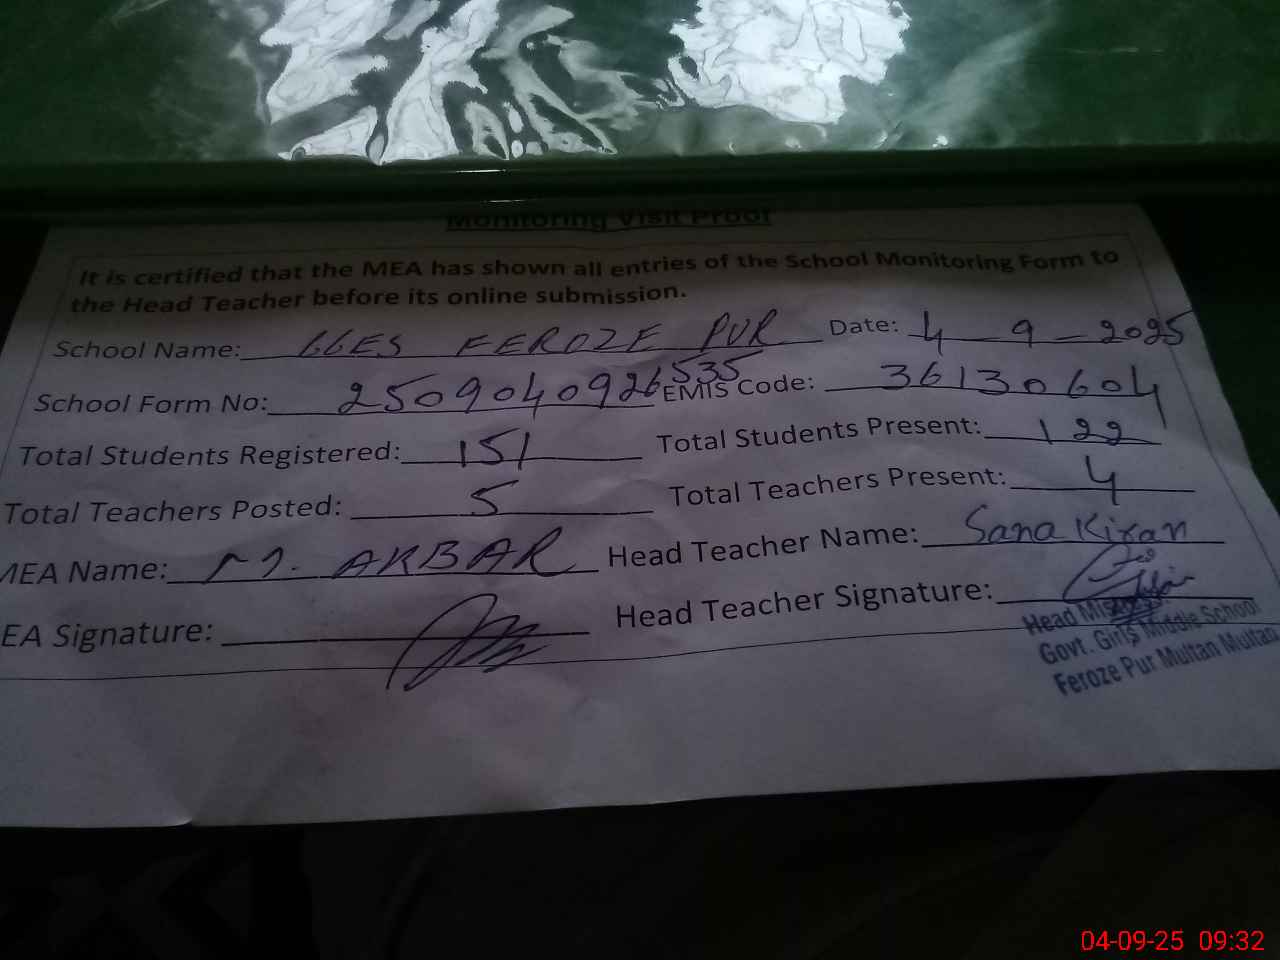 Monitoring Visit Proof
It is certified that the MEA has shown all entries of the School Monitoring Form to
the Head Teacher before its online submission.
School Name: GGES FEROZE PUR Date: 4-9-2025
School Form No: 2509040926535 EMIS Code: 36130604
Total Students Registered: 151 Total Students Present: 122
Total Teachers Posted: 5 Total Teachers Present: 4
MEA Name: M. AKBAR Head Teacher Name: Sana Kiran
EA Signature: Head Teacher Signature:
Head
Govt. Girls Middle School
Feroze Pur Multan Multan
04-09-25 09:32